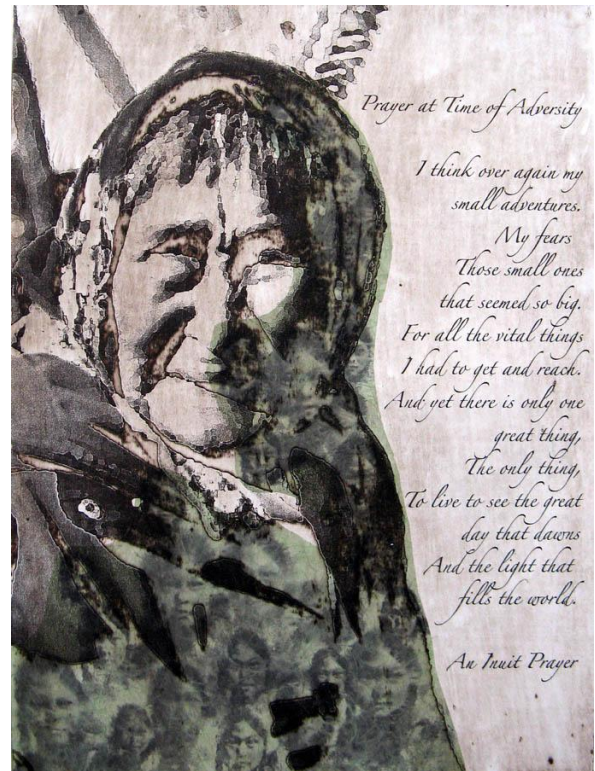 Prayer at Time of Adversity
I think over again my
small adventures.
My fears
Those small ones
that seemed so big.
For all the vital things
I had to get and reach.
And yet there is only one
great thing,
The only thing,
To live to see the great
day that dawns
And the light that
fills the world.
An Inuit Prayer